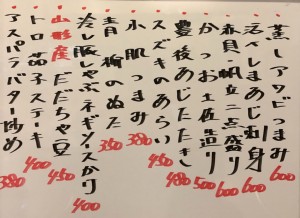 蒸しアワビつまみ 600
活〆しまあじ刺身 600
赤貝・帆立二点盛り 600
かつお土佐造り 500
豊後あじたたき 480
スズキのあらい 450
水肌つまみ 380
青柳のぬた 350
冷し豚しゃぶネギソースかけ 400
山形産だだちゃ豆 450
トロ茄子ステーキ 400
アスパラバター炒め 380